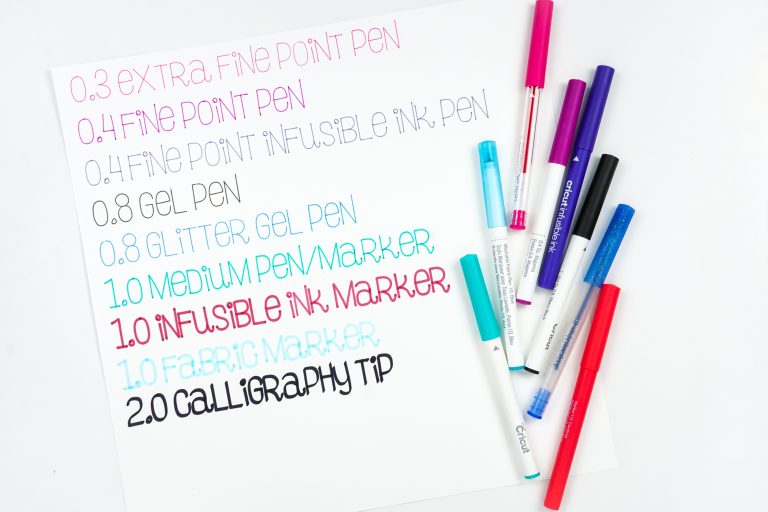 0.3 EXTRA FINE POINT PEN
0.4 FINE POINT PEN
0.4 FINE POINT INFUSIBLE INK PEN
0.8 GEL PEN
0.8 GLITTER GEL PEN
1.0 MEDIUM PEN/MARKER
1.0 INFUSIBLE INK MARKER
1.0 FABRIC MARKER
2.0 CALLIGRAPHY TIP
cricut infusible ink
Cricut
Cricut